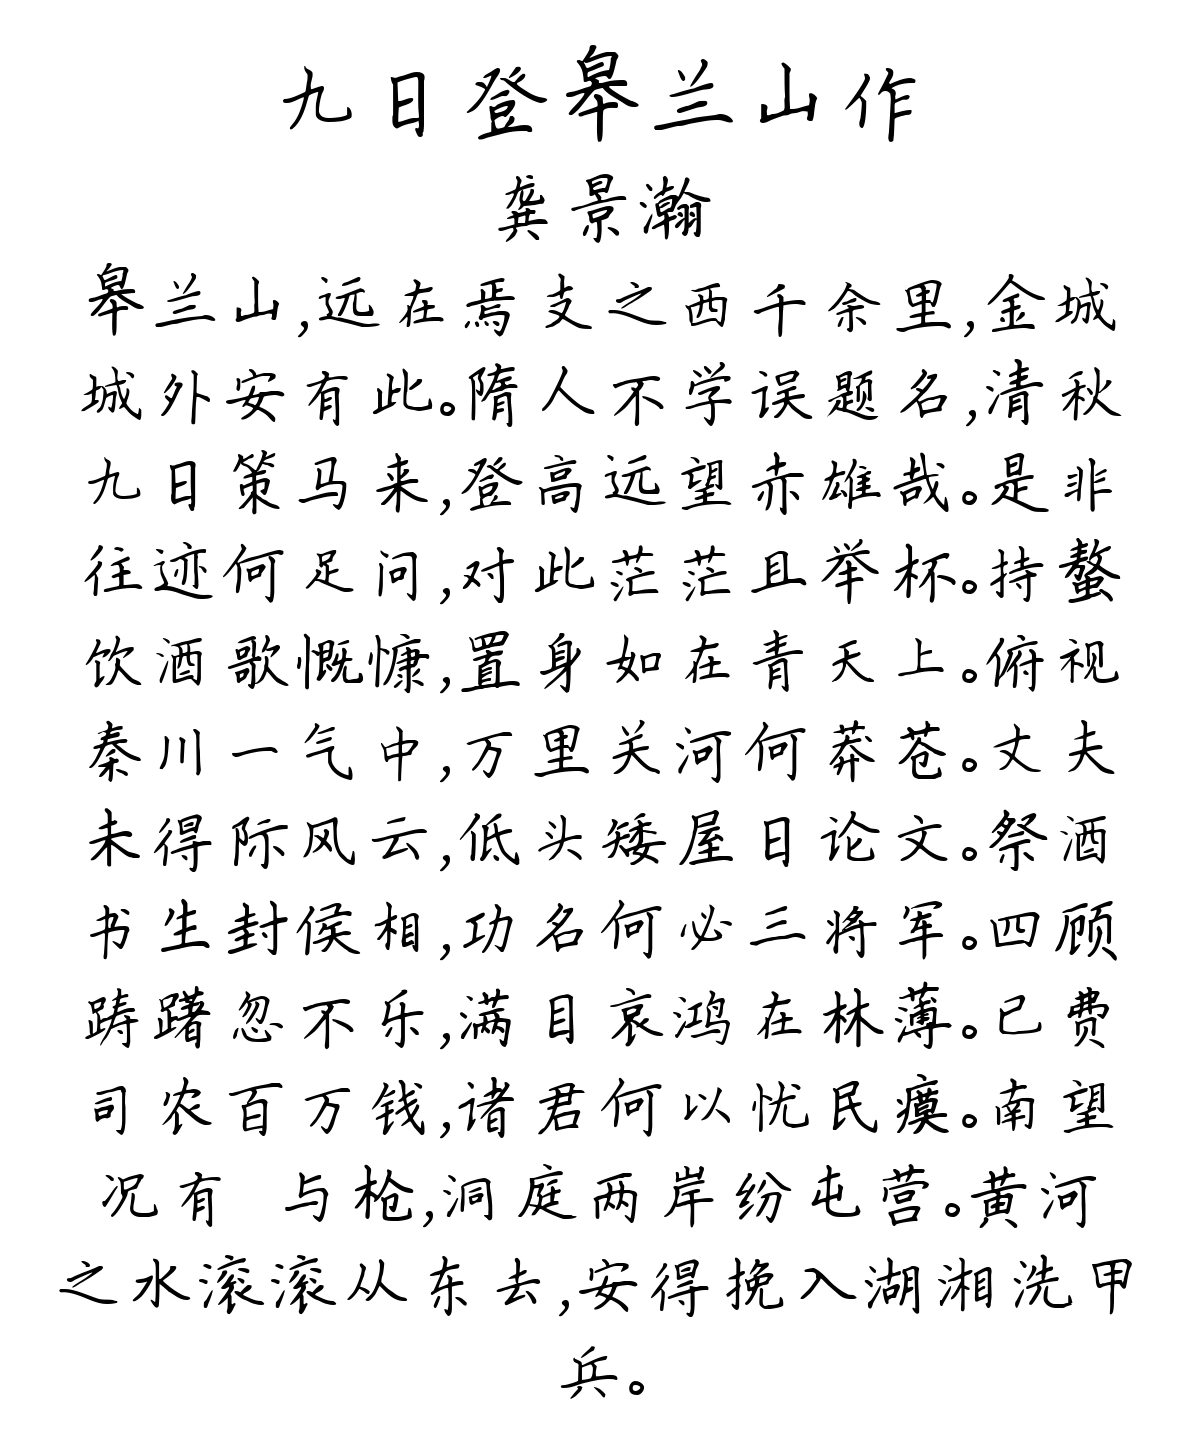 九日登皋兰山作
龚景瀚
皋兰山,远在焉支之西千余里,金城
城外安有此。隋人不学误题名,清秋
九日策马来,登高远望赤雄哉。是非
往迹何足问,对此茫茫且举杯。持螯
饮酒歌慨慷,置身如在青天上。俯视
秦川一气中,万里关河何莽苍。丈夫
未得际风云,低头矮屋日论文。祭酒
书生封侯相,功名何必三将军。四顾
踌躇忽不乐,满目哀鸿在林薄。已费
司农百万钱,诸君何以忧民瘼。南望
况有 与枪,洞庭两岸纷屯营。黄河
之水滚滚从东去,安得挽入湖湘洗甲
兵。